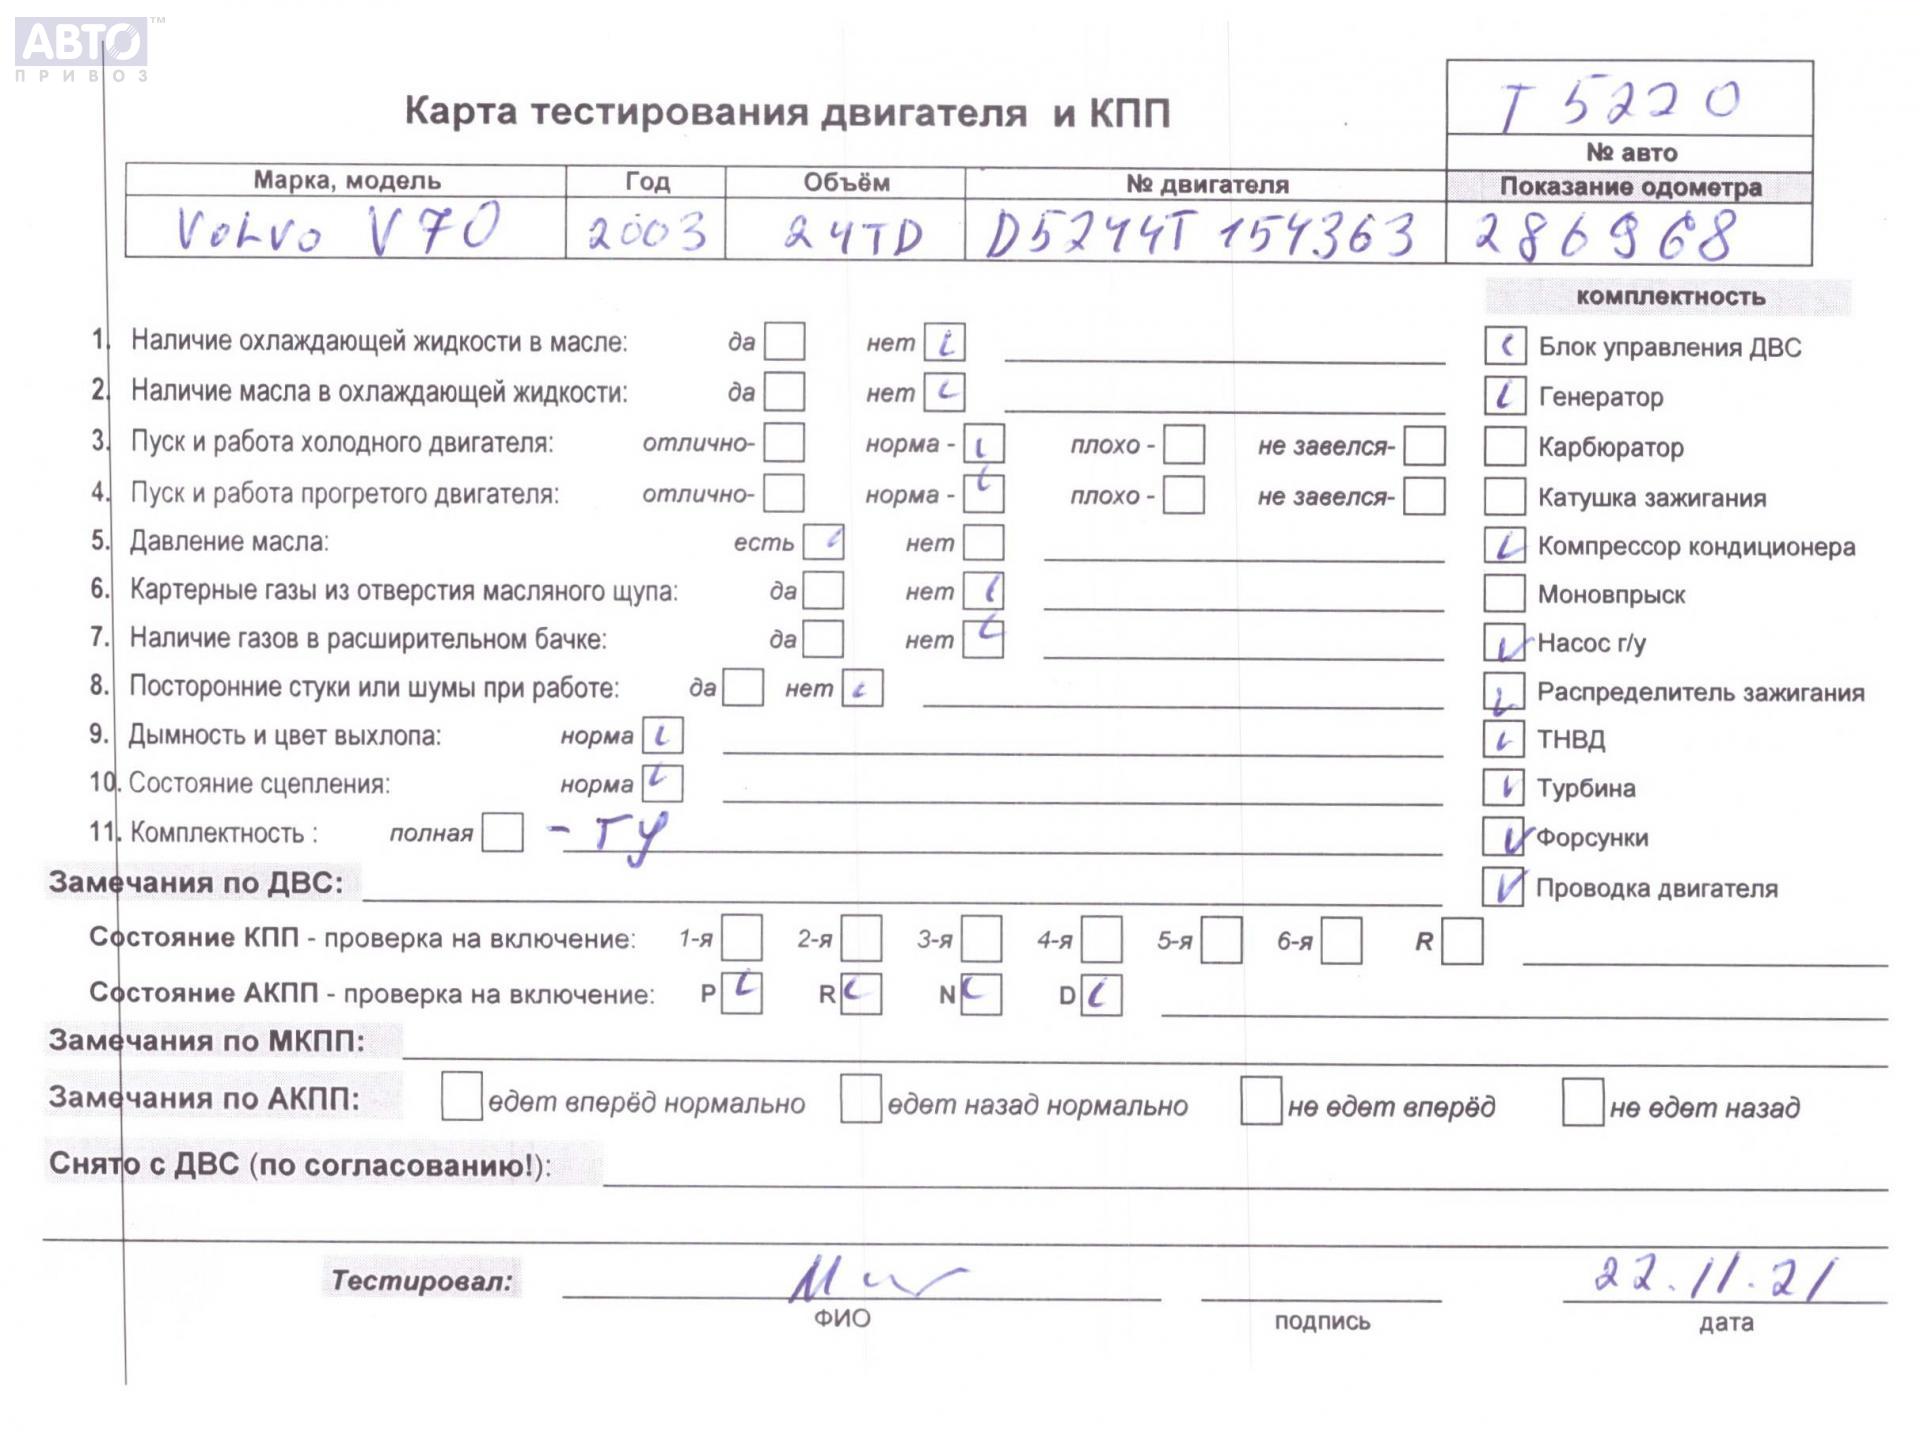 АВТО™
ПРИВОЗ
Карта тестирования двигателя и КПП
Т 5220
№ авто
Марка, модель Год Объём № двигателя Показание одометра
Volvo V70 2003 24TD D5244T 154363 286968
комплектность
1. Наличие охлаждающей жидкости в масле: да нет
Блок управления ДВС
2. Наличие масла в охлаждающей жидкости: да нет
Генератор
3. Пуск и работа холодного двигателя: отлично- норма - плохо - не завелся-
Карбюратор
4. Пуск и работа прогретого двигателя: отлично- норма - плохо - не завелся-
Катушка зажигания
5. Давление масла: есть нет
Компрессор кондиционера
6. Картерные газы из отверстия масляного щупа: да нет
Моновпрыск
7. Наличие газов в расширительном бачке: да нет
Насос г/у
8. Посторонние стуки или шумы при работе: да нет
Распределитель зажигания
9. Дымность и цвет выхлопа: норма
ТНВД
10. Состояние сцепления: норма
Турбина
11. Комплектность : полная - ГУ
Форсунки
Замечания по ДВС:
Проводка двигателя
Состояние КПП - проверка на включение: 1-я 2-я 3-я 4-я 5-я 6-я R
Состояние АКПП - проверка на включение: P R N D
Замечания по МКПП:
Замечания по АКПП: едет вперёд нормально едет назад нормально не едет вперёд не едет назад
Снято с ДВС (по согласованию!):
Тестировал: 22.11.21
ФИО подпись дата